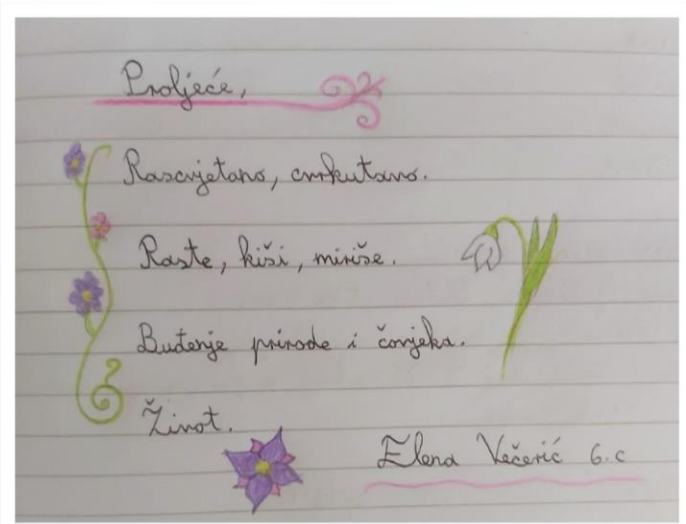 Proljeće,
Rascvjetano, cvrkutavo.
Raste, kiši, miriše.
Buđenje prirode i čovjeka.
Život.
Elena Večerić 6.c